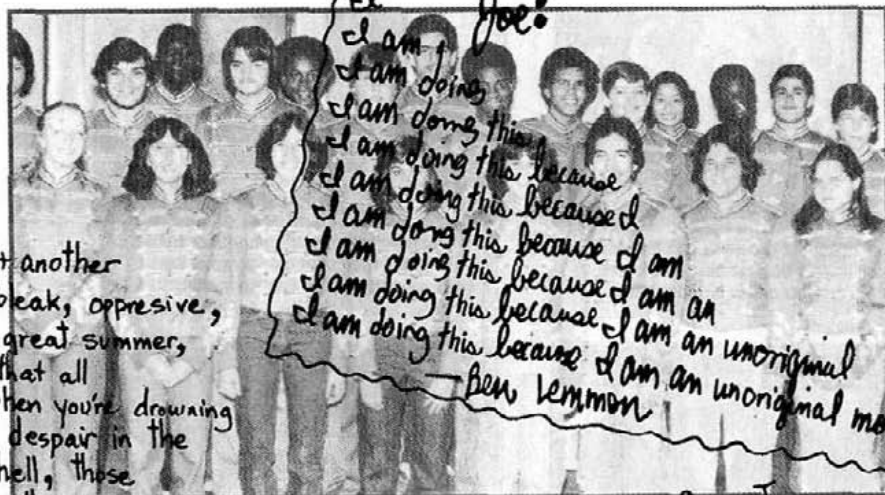 Joe!
I
I am
I am doing
I am doing this
I am doing this because
I am doing this because I
I am doing this because I am
I am doing this because I am an
I am doing this because I am an unoriginal
I am doing this because I am an unoriginal
— Ben Lemmon
another
bleak, oppresive,
great summer,
that all
when you're drowning
despair in the
hell, those